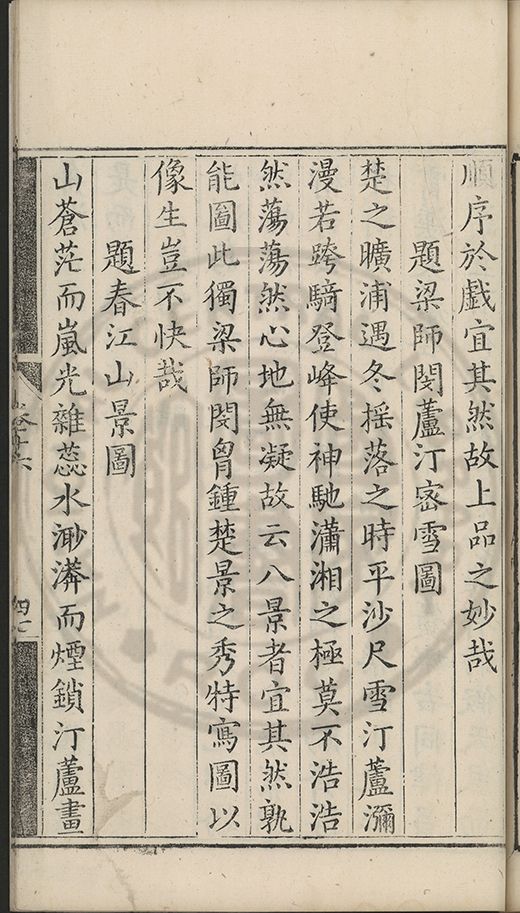 順序於戲宜其然故上品之妙哉
題梁師閔蘆汀密雪圖
楚之曠浦遇冬摇落之時平沙尺雪汀蘆瀰
漫若跨騎登峰使神馳瀟湘之極莫不浩浩
然蕩蕩然心地無凝故云八景者宜其然孰
能圖此獨梁師閔胷鍾楚景之秀特寫圖以
像生豈不快哉
題春江山景圖
山蒼茫而嵐光雜蕊水渺漭而煙鎖汀蘆畫